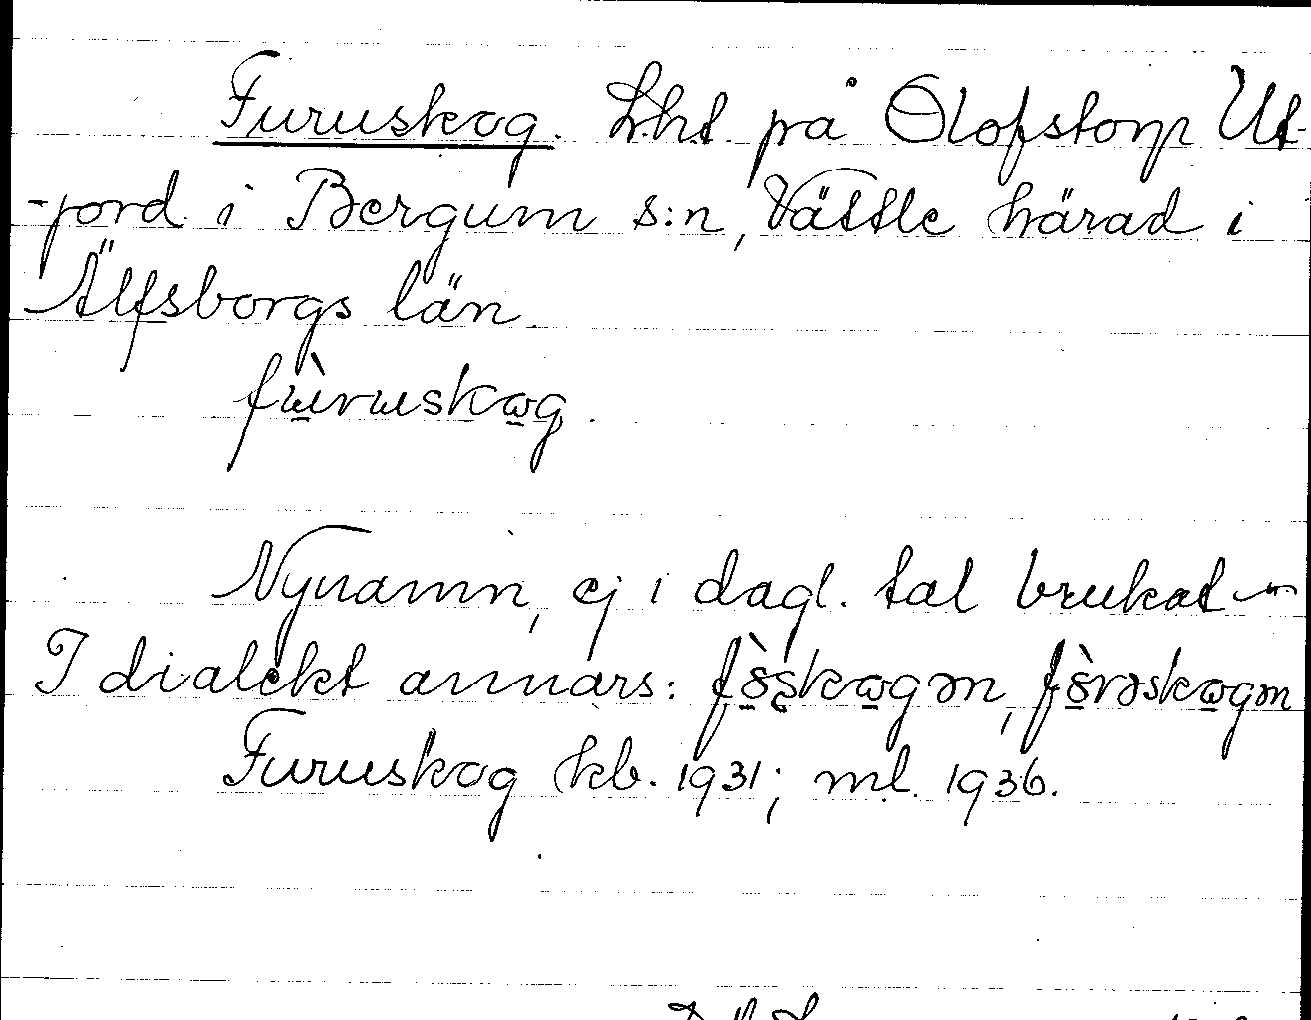 Furuskog. Lht på Olofstorp Ut-
-jord i Bergum s:n, Vättle härad i
Älfsborgs län
fùruskog.
Nynamn, ej i dagl. tal brukat
I dialekt annars: fòskogən, fòrəskogən
Furuskog kb. 1931; ml. 1936.